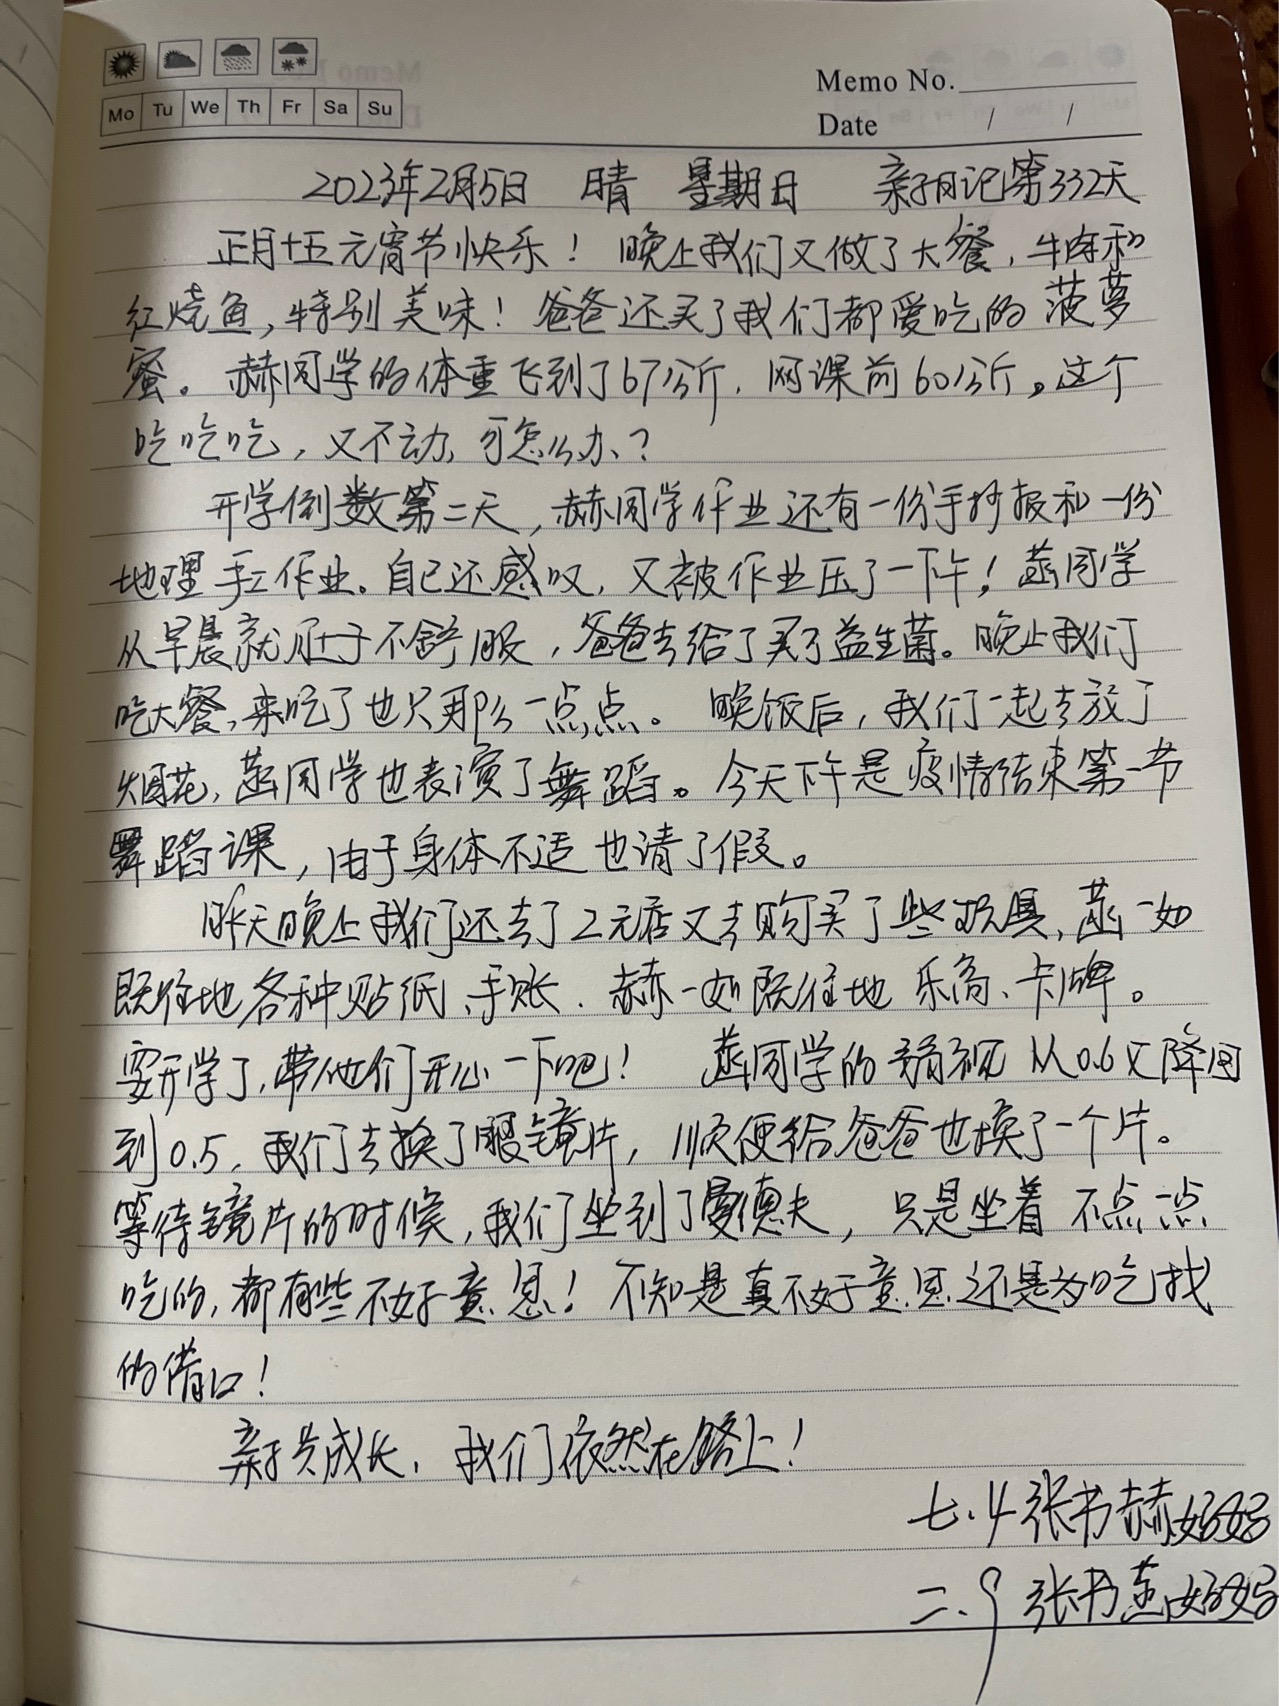 Mo Tu We Th Fr Sa Su
Memo No.
Date / /
2023年2月5日 晴 星期日 亲子日记第332天
正月十五元宵节快乐！晚上我们又做了大餐，牛排和
红烧鱼，特别美味！爸爸还买了我们都爱吃的菠萝
蜜。赫同学的体重飞到了67公斤，网课前60公斤。这个
吃吃吃，又不动，可怎么办？
开学倒数第二天，赫同学作业还有一份手抄报和一份
地理手工作业。自己还感叹，又被作业压了一下午！菡同学
从早晨就肚子不舒服，爸爸去给了买了益生菌。晚上我们
吃大餐，来吃了也只那么一点点。晚饭后，我们一起去放了
烟花，菡同学也表演了舞蹈。今天下午是疫情结束第一节
舞蹈课，由于身体不适也请了假。
昨天晚上我们还去了2元店又去购买了些玩具，菡一如
既往地各种贴纸、手账，赫一如既往地乐高、卡牌。
要开学了，带他们开心一下吧！菡同学的弱视从0.6又降回
到0.5，我们去换了眼镜片，顺便给爸爸也换了一个片。
等待镜片的时候，我们坐到了曼德夫，只是坐着不点一点
吃的，都有些不好意思！不知是真不好意思还是为吃找
的借口！
亲子共成长，我们依然在路上！
七.4张书赫妈妈
二.9张书菡妈妈